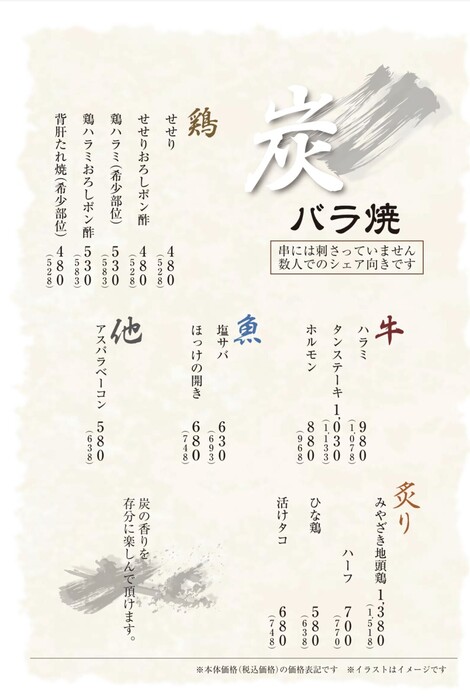 炭
バラ焼
串には刺さっていません
数人でのシェア向きです
鶏
せせり 480 (528)
せせりおろしポン酢 480 (528)
鶏ハラミ(希少部位) 530 (583)
鶏ハラミおろしポン酢 530 (583)
背肝たれ焼(希少部位) 480 (528)
牛
ハラミ 980 (1,078)
タンステーキ 1,030 (1,133)
ホルモン 880 (968)
魚
塩サバ 630 (693)
ほっけの開き 680 (748)
他
アスパラベーコン 580 (638)
炙り
みやざき地頭鶏 1,380 (1,518)
ハーフ 700 (770)
ひな鶏 580 (638)
活けタコ 680 (748)
炭の香りを
存分に楽しんで頂けます。
※本体価格(税込価格)の価格表記です ※イラストはイメージです